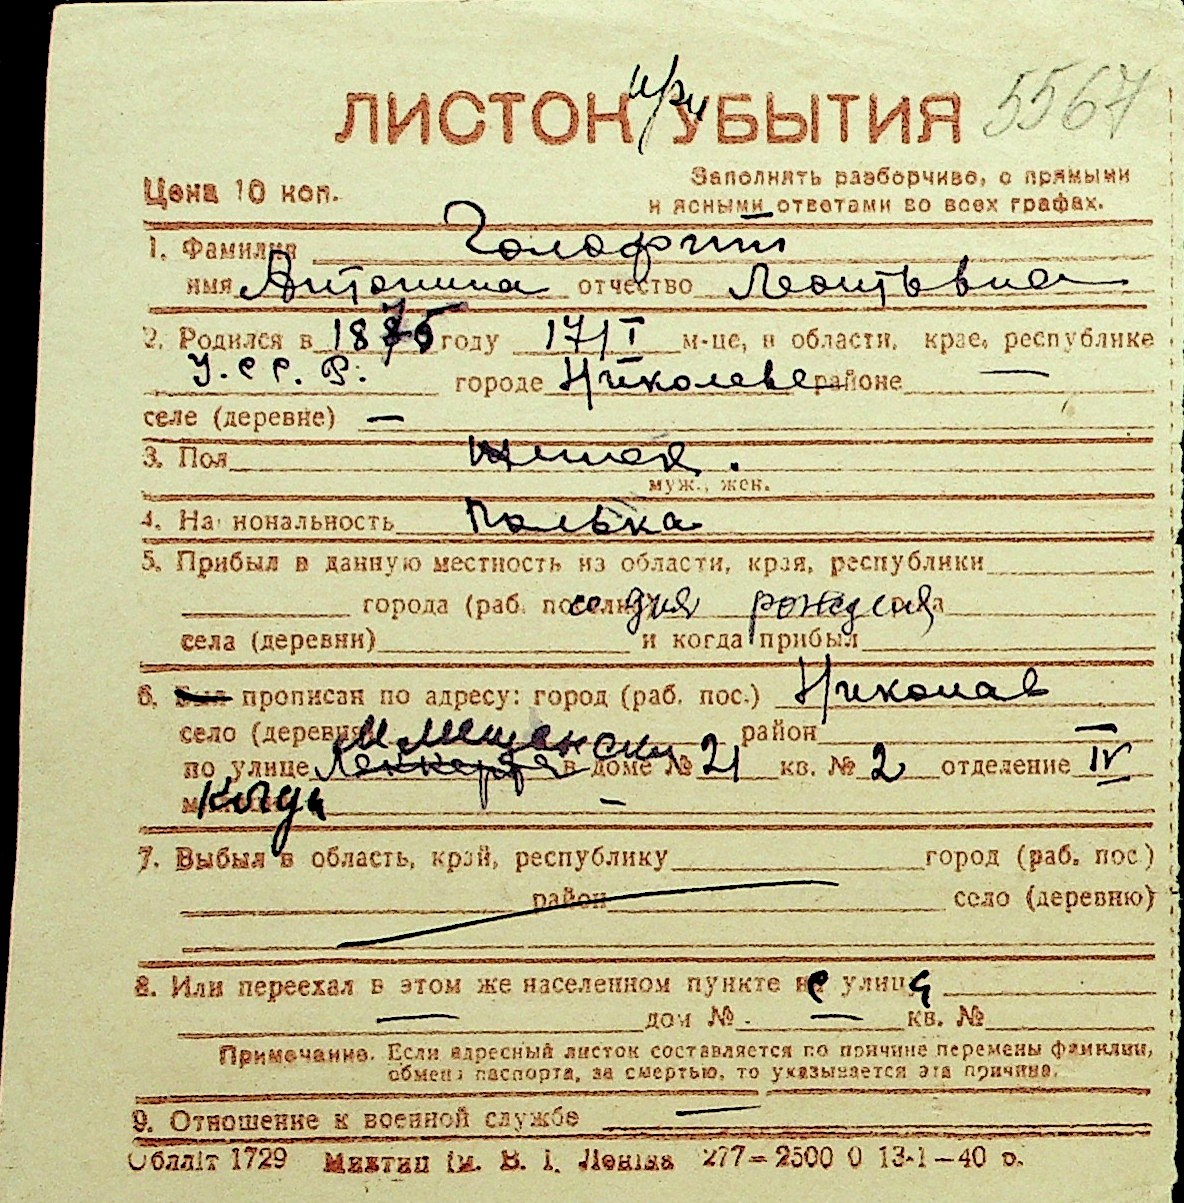 ЛИСТОК при УБЫТИЯ 5567
Цена 10 коп.
Заполнять разборчиво, с прямыми
и ясными ответами во всех графах.
1. Фамилия
имя Антонина отчество Леонтьевна
2. Родился в 1875 году 17/I м-це, в области, крае, республике
У.С.С.Р. городе Николаеве районе —
селе (деревне) —
3. Пол
муж., жен.
4. Национальность полька
5. Прибыл в данную местность из области, края, республики
города (раб. поселка) со дня рождения района
села (деревни) и когда прибыл
6. Был прописан по адресу: город (раб. пос.) Николаев
село (деревня) район —
М. Мещанск
по улице в доме № 21 кв. № 2 отделение IV
Когда —
7. Выбыл в область, край, республику город (раб. пос)
район село (деревню)
8. Или переехал в этом же населенном пункте с улиц
— дом № — кв. №
Примечание. Если адресный листок составляется по причине перемены фамилии,
обмена паспорта, за смертью, то указывается эта причина.
9. Отношение к военной службе —
Обллiт 1729 Миктип iм. В. I. Ленiна 277—2500 0 13-1—40 р.